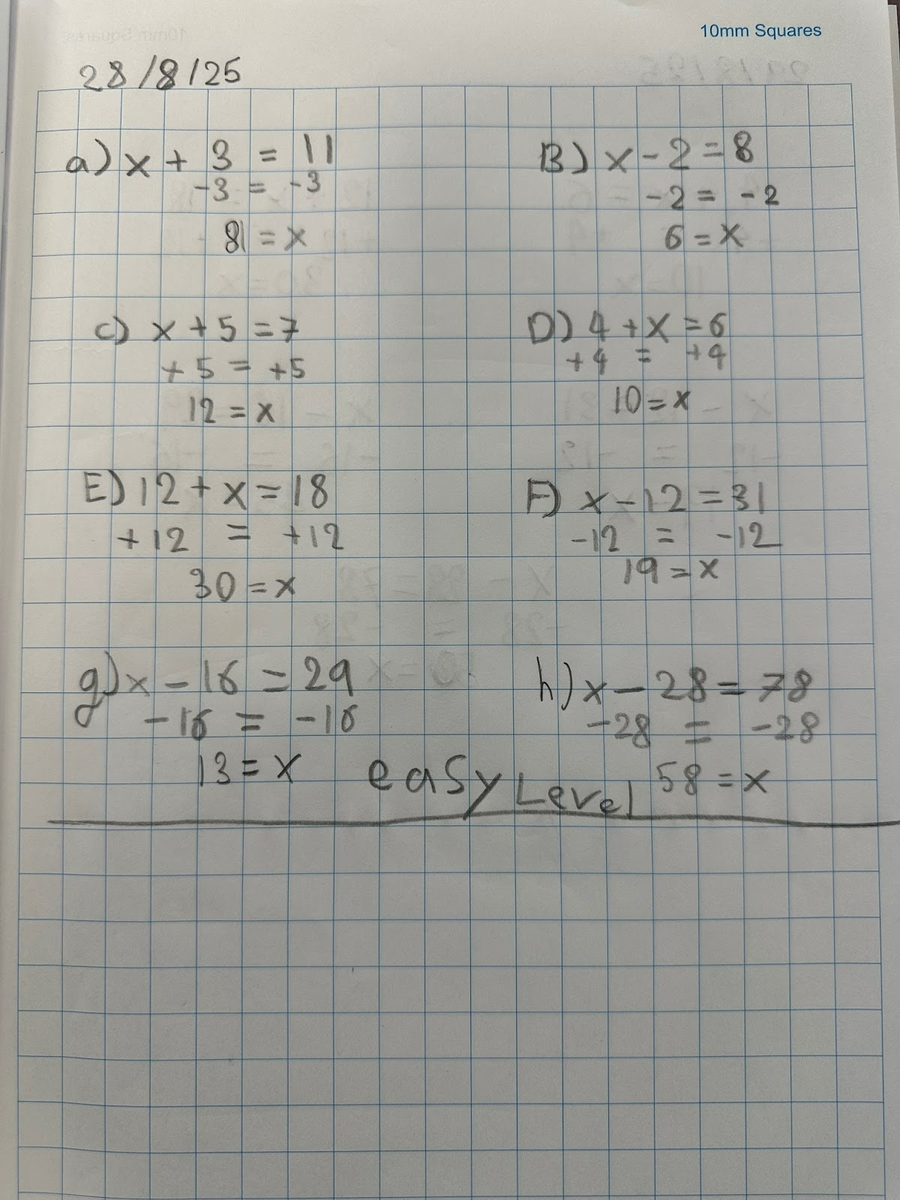 10mm Squares
28/8/25
a) x + 3 = 11
-3 = -3
8 = x
B) x - 2 = 8
-2 = -2
6 = x
c) x + 5 = 7
+5 = +5
12 = x
D) 4 + x = 6
+4 = +4
10 = x
E) 12 + x = 18
+12 = +12
30 = x
F) x - 12 = 31
-12 = -12
19 = x
g) x - 16 = 29
-16 = -16
13 = x
h) x - 28 = 78
-28 = -28
58 = x
easy Level